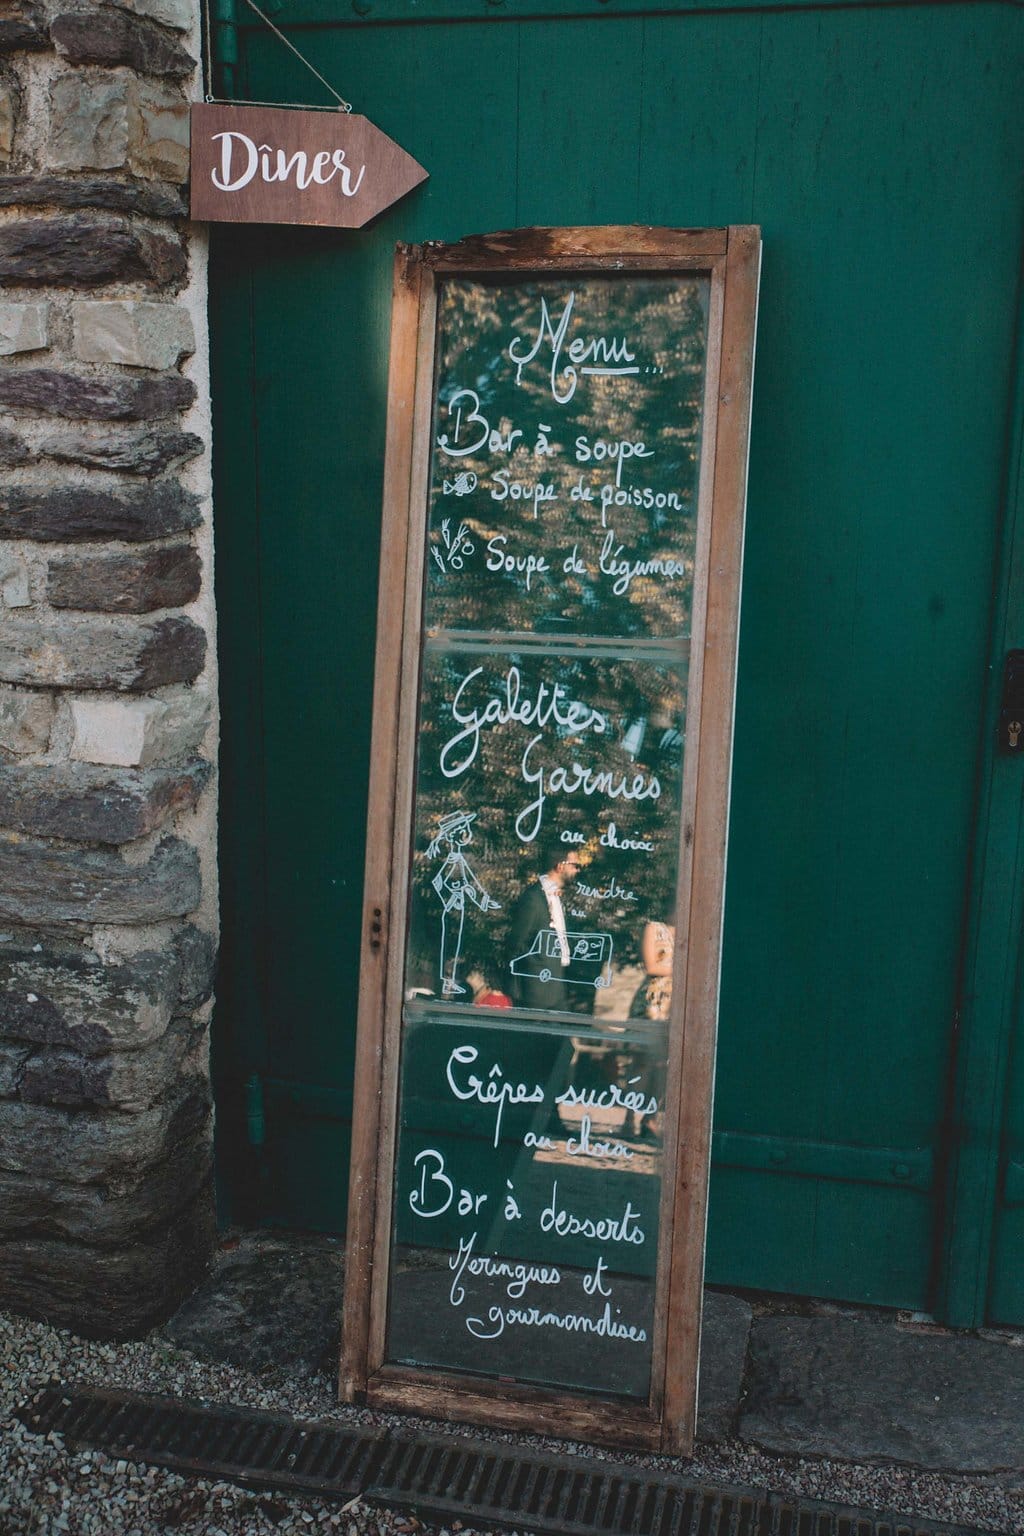 Dîner
Menu...
Bar à soupe
Soupe de poisson
Soupe de légumes
Galettes
Garnies
au choix
rendre
au
Crêpes sucrées
au choix
Bar à desserts
Meringues et
gourmandises